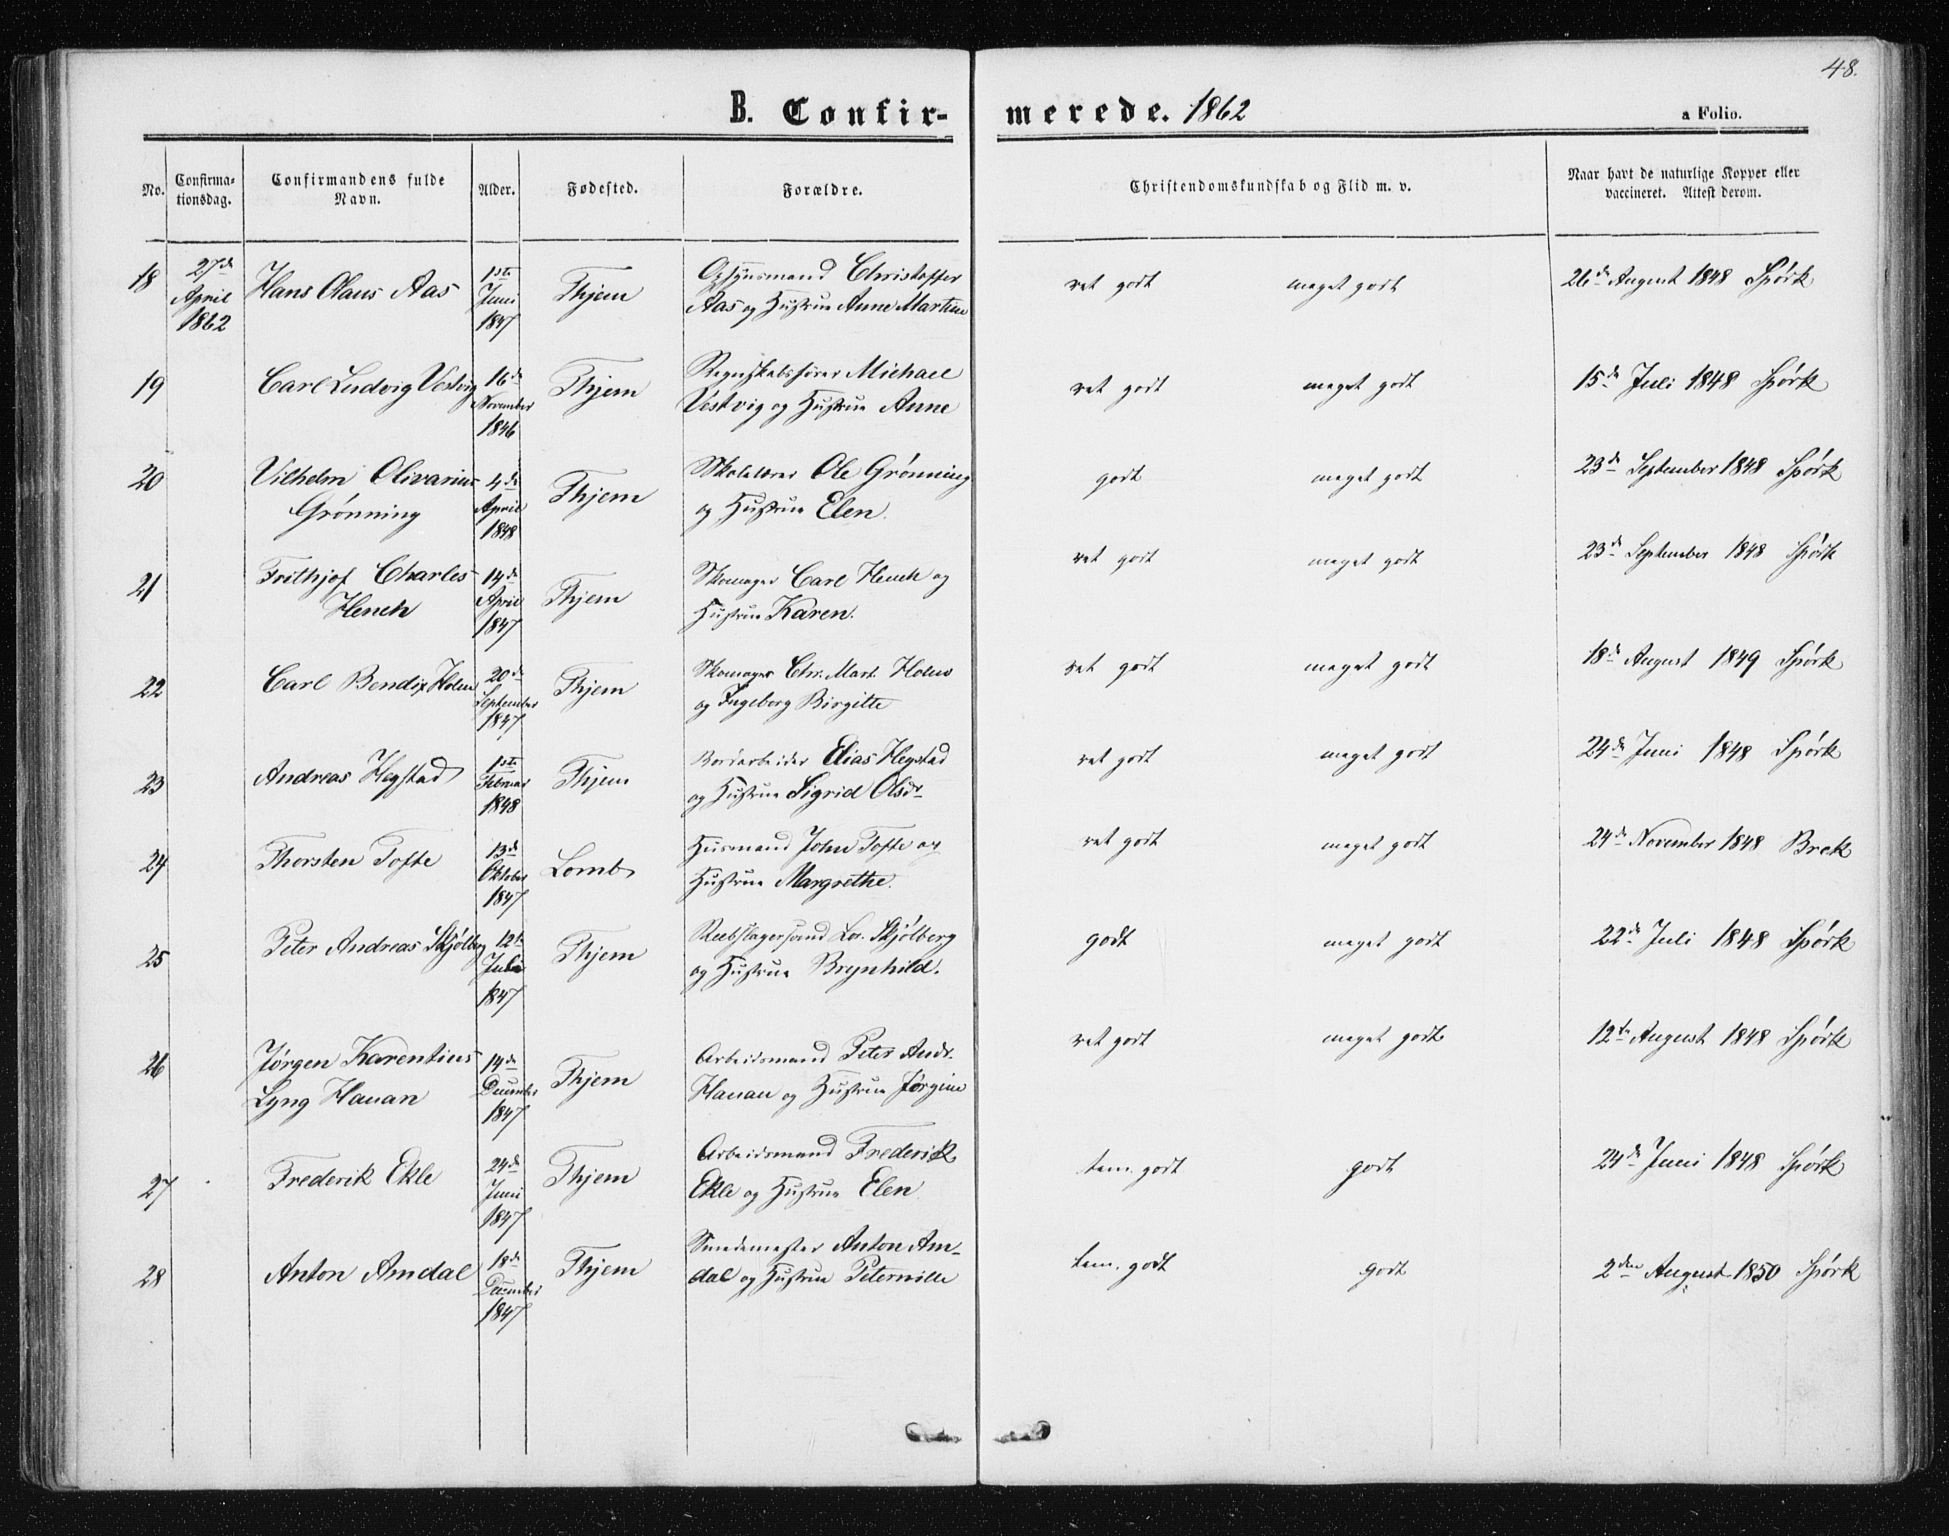 48.
B. Confirmerede. 1862
a Folio.
No.
Confirma-
tionsdag.
Confirmandens fulde
Navn.
Alder.
Fødested.
Forældre.
Christendomskundskab og Flid m. v.
Naar havt de naturlige Kopper eller
vaccineret. Attest derom.
18
27de
April
1862
Hans Olaus Aas
1ste
Juni
1847
Thjem
Opsynsmand Christoffer
Aas og Hustrue Anne Martine
ret godt
meget godt
26de August 1848 Spörk
19
Carl Ludvig Vestvig
16de
November
1846
Thjem
Regnskabsfører Michael
Vestvig og Hustrue Anne
ret godt
meget godt
15de Juli 1848 Spörk
20
Vilhelm Olivarius
Grønning
4de
April
1848
Thjem
Skolelærer Ole Grønning
og Hustrue Elen.
godt
meget godt
23de September 1848 Spörk
21
Frithjof Charles
Hench
14de
April
1847
Thjem
Skomager Carl Hench og
Hustrue Karen.
ret godt
meget godt
23de September 1848 Spörk
22
Carl Bendix Holm
20de
September
1847
Thjem
Skomager Chr. Mart. Holm
og Ingeborg Birgitte
ret godt
meget godt
18de August 1849 Spörk
23
Andreas Hegstad
1ste
Februar
1848
Thjem
Elias Hegstad
og Hustrue Sigrid Olsdr
ret godt
meget godt
24de Juni 1848 Spörk
24
Thorsten Tofte
13de
Oktober
1847
Lomb
Husmand John Tofte og
Hustrue Margrethe.
ret godt
meget godt
24de November 1848 Brek
25
Peter Andreas Skjølberg
12te
Juli
1847
Thjem
Reebslagersvend Lor. Skjølberg
og Hustrue Brynhild.
godt
meget godt
22de Juli 1848 Spörk
26
Jørgen Karentius
Lyng Hauan
14de
December
1847
Thjem
Arbeidsmand Peter Andr.
Hauan og Hustrue Jørgine
ret godt
meget godt
12te August 1848 Spörk
27
Frederik Ekle
24de
Juni
1847
Thjem
Arbeidsmand Frederik
Ekle og Hustrue Elen
tem. godt
godt
24de Juni 1848 Spörk
28
Anton Amdal
18de
December
1847
Thjem
Smedemester Anton Am-
dal og Hustrue Peternille
tem. godt
godt
2den August 1850 Spörk